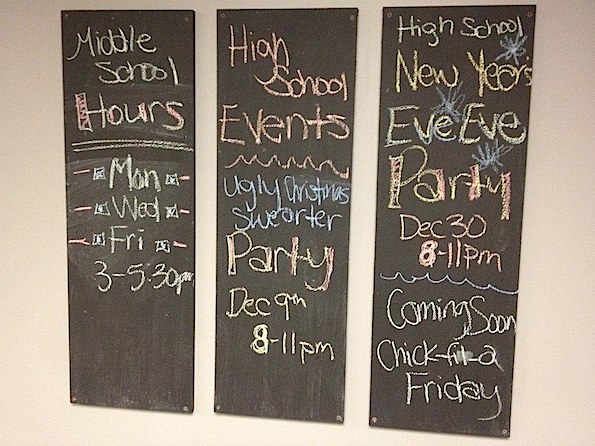 Middle
School
Hours
Mon
Wed
Fri
3-5:30pm
High
School
Events
Ugly Christmas
Swearter
Party
Dec 9th
8-11pm
High School
New Year's
Eve Eve
Party
Dec 30
8-11pm
Coming Soon
Chick-fil-a
Friday